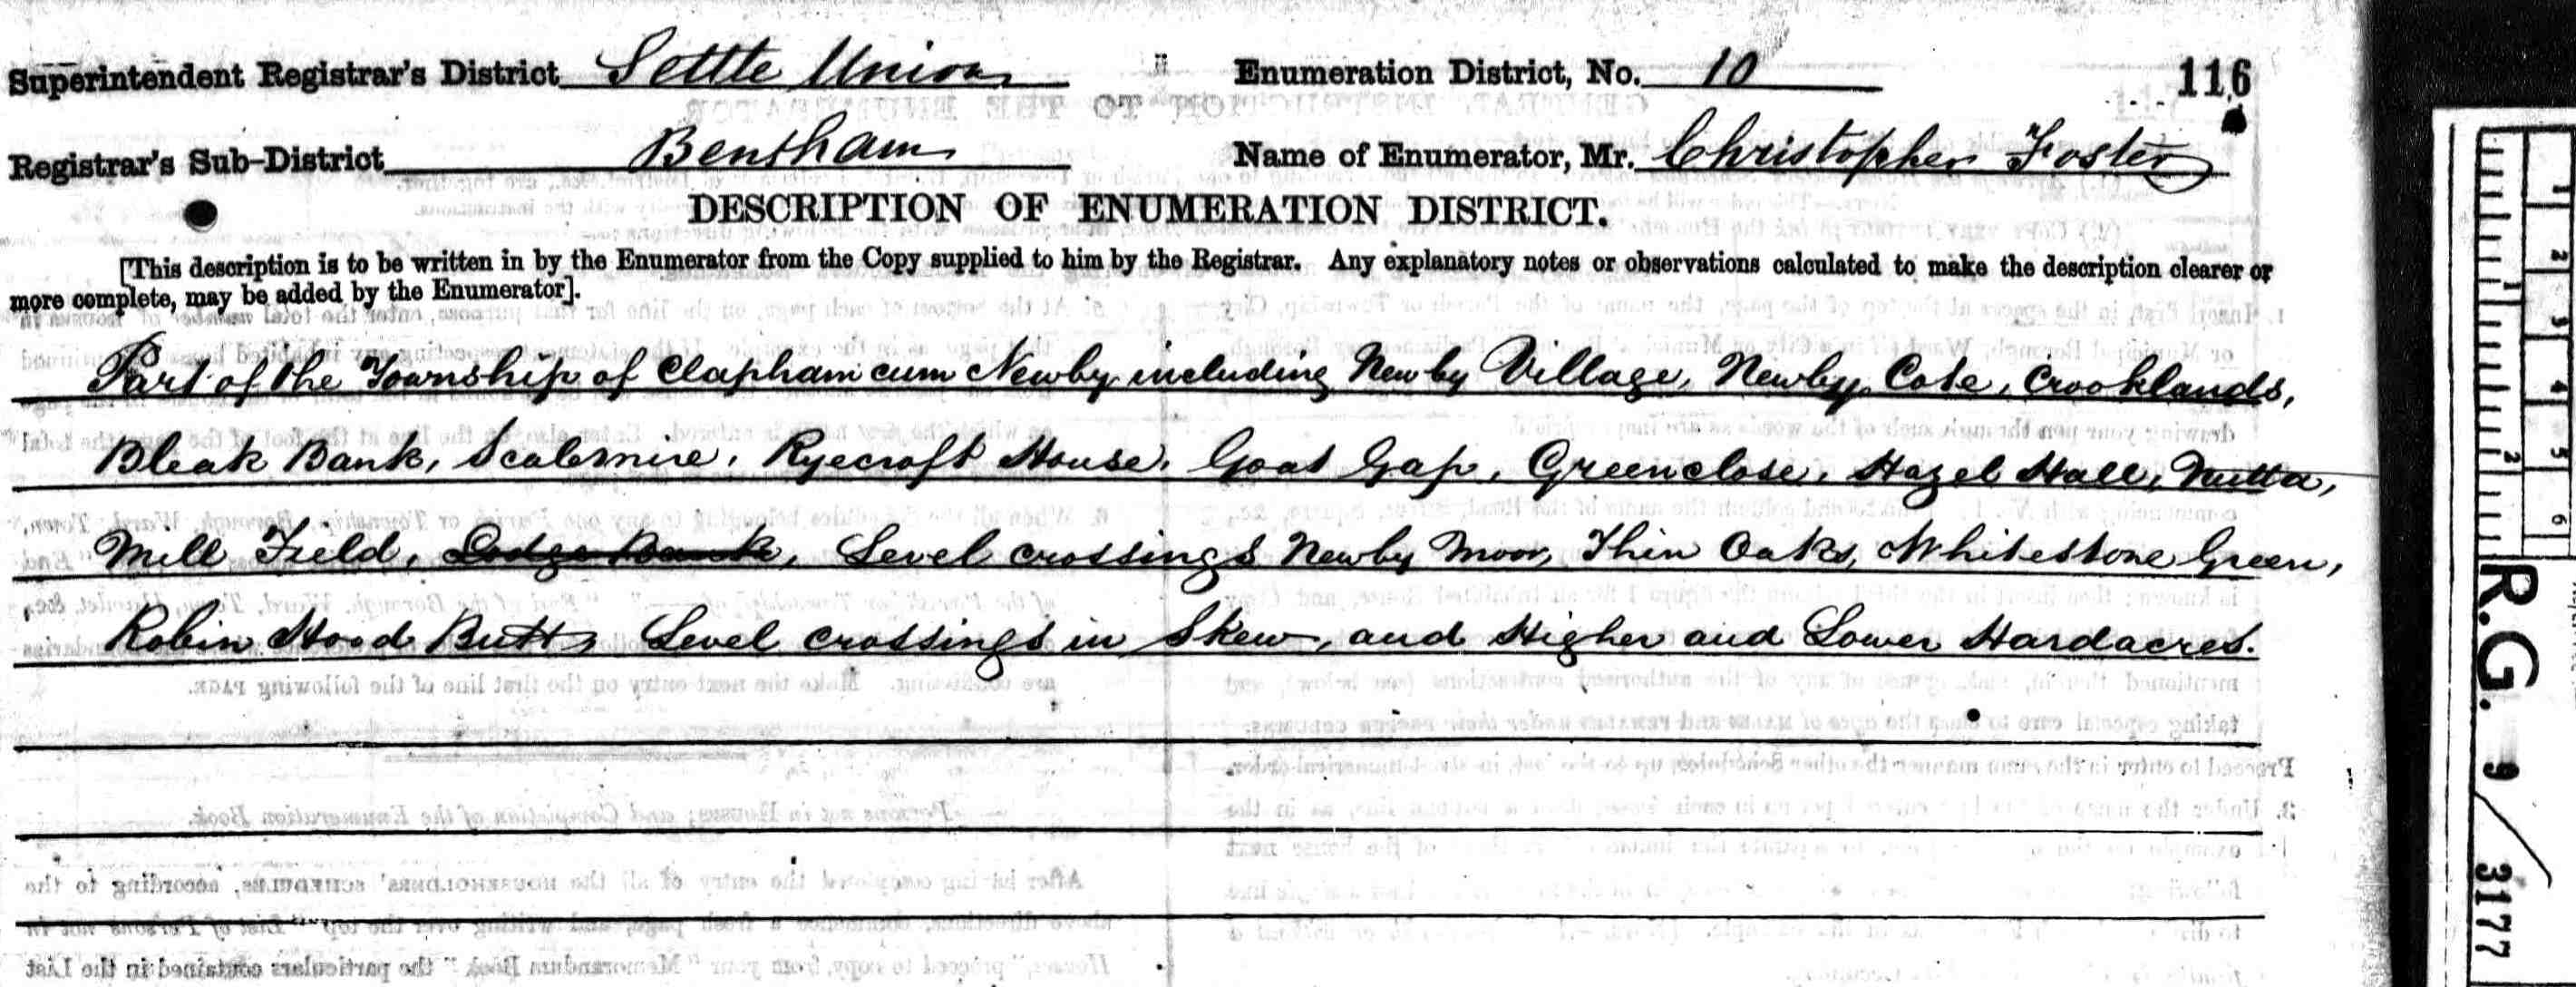 Superintendent Registrar's District Settle Union Enumeration District, No. 10 116
Registrar's Sub-District Bentham Name of Enumerator, Mr. Christopher Foster
DESCRIPTION OF ENUMERATION DISTRICT.
[This description is to be written in by the Enumerator from the Copy supplied to him by the Registrar. Any explanatory notes or observations calculated to make the description clearer or
more complete, may be added by the Enumerator].
Part of the Township of Clapham cum Newby including Newby Village, Newby Cote, Crooklands,
Bleak Bank, Scalemire, Ryecroft House, Goat Gap, Greenclose, Hazel Hall, Nutta,
Mill Field, Dodge Bank, Level crossings Newby Moor, Thin Oaks, Whitestone Green,
Robin Hood Butts Level crossings in Skew, and Higher and Lower Hardacres.
R.G. 9/3177
1
2
3
4
5
6
1
2